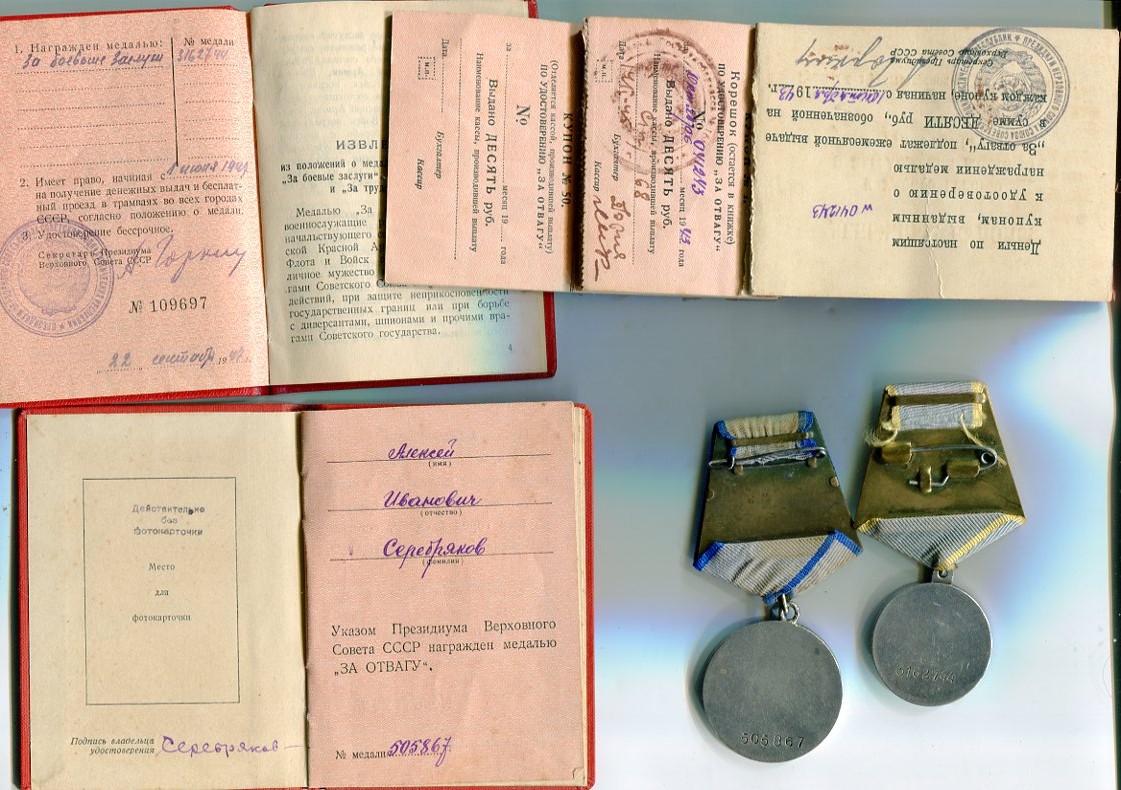 1. Награжден медалью:
№ медали
За боевые заслуги
3162744
2. Имеет право, начиная с 1 июня 194
на получение денежных выдач и бесплат-
ный проезд в трамваях во всех городах
СССР, согласно положению о медали.
3. Удостоверение бессрочное.
Секретарь Президиума
Верховного Совета СССР
А. Горкин
№ 109697
„22„ сентябр 194
ИЗВЛЕ
из положений о меда
„За боевые заслуги“
и „За тру
Медалью „За
военнослужащие
начальствующего с
ской Красной А
Флота и Войск
личное мужество
гами Советского
действий, при защите неприкосновенности
государственных границ или при борьбе
с диверсантами, шпионами и прочими вра-
гами Советского государства.
4
КУПОН № 50.
(Отделяется кассой, производившей выплату)
ПО УДОСТОВЕРЕНИЮ „ЗА ОТВАГУ“
№
Выдано ДЕСЯТЬ руб.
за месяц 19 года
Наименование кассы, производившей выплату
Бухгалтер
Кассир
Дата
м.п.
Корешок (остается в книжке)
ПО УДОСТОВЕРЕНИЮ „ЗА ОТВАГУ“
№ 041243
Выдано ДЕСЯТЬ руб.
месяц 1943 года
Наименование кассы, производившей выплату
Бухгалтер
Кассир
Дата
м.п.
Деньги по настоящим
купонам, выданным
к удостоверению о
№ 041243
награждении медалью
„За отвагу“, подлежат ежемесячной выдаче
в сумме ДЕСЯТИ руб., обозначенной на
каждом купоне, начиная с
Секретарь Президиума
Верховного Совета СССР
Действительно
без
фотокарточки
Место
для
фотокарточки
Подпись владельца
удостоверения Серебряков
Алексей
(имя)
Иванович
(отчество)
Серебряков
(фамилия)
Указом Президиума Верховного
Совета СССР награжден медалью
„ЗА ОТВАГУ“.
№ медали 505867
505867
3162744